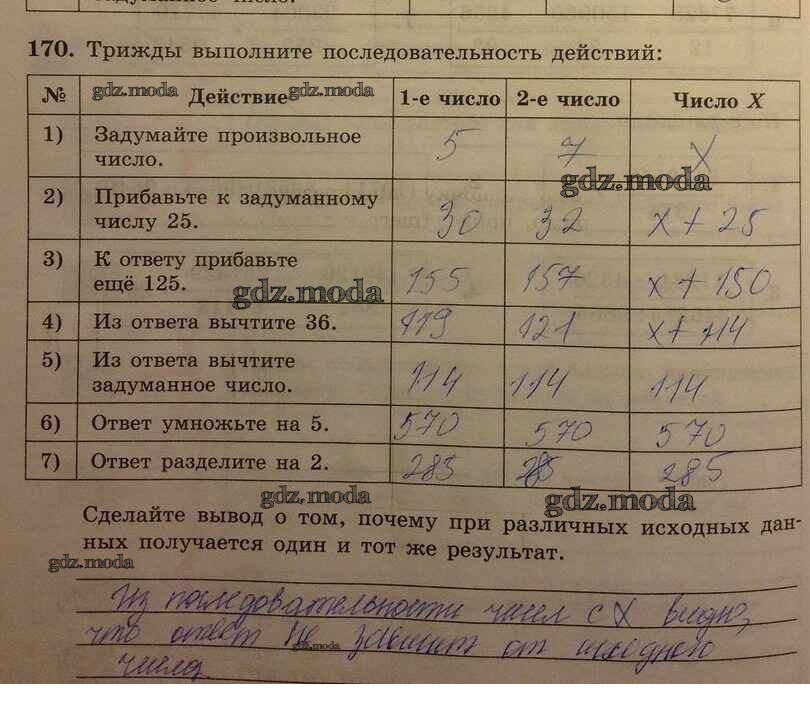 задуманное число.
170. Трижды выполните последовательность действий:
№ gdz.moda Действие gdz.moda 1-е число 2-е число Число X
1) Задумайте произвольное число. 5 7 x
gdz.moda
2) Прибавьте к задуманному числу 25. 30 32 x + 25
3) К ответу прибавьте ещё 125. 155 157 x + 150
gdz.moda
4) Из ответа вычтите 36. 119 121 x + 114
5) Из ответа вычтите задуманное число. 114 114 114
6) Ответ умножьте на 5. 570 570 570
7) Ответ разделите на 2. 285 285 285
gdz.moda gdz.moda
Сделайте вывод о том, почему при различных исходных дан-
ных получается один и тот же результат.
gdz.moda
Из последовательности чисел с X видно,
что ответ не зависит от исходного
gdz.moda
числа.